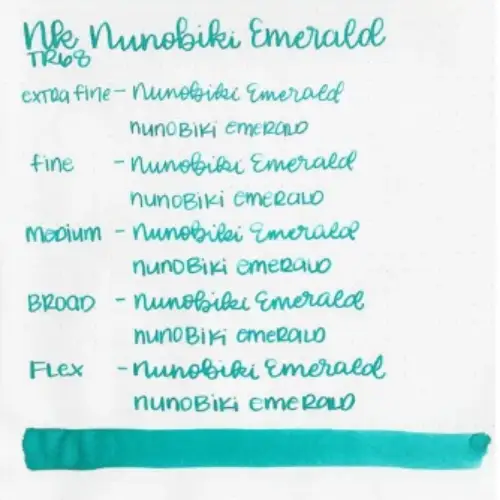 NK Nunobiki Emerald
TR68
extra fine - Nunobiki Emerald
nunobiki emerald
fine - Nunobiki Emerald
nunobiki emerald
medium - Nunobiki Emerald
nunobiki emerald
BROAD - Nunobiki Emerald
nunobiki emerald
Flex - Nunobiki Emerald
nunobiki emerald